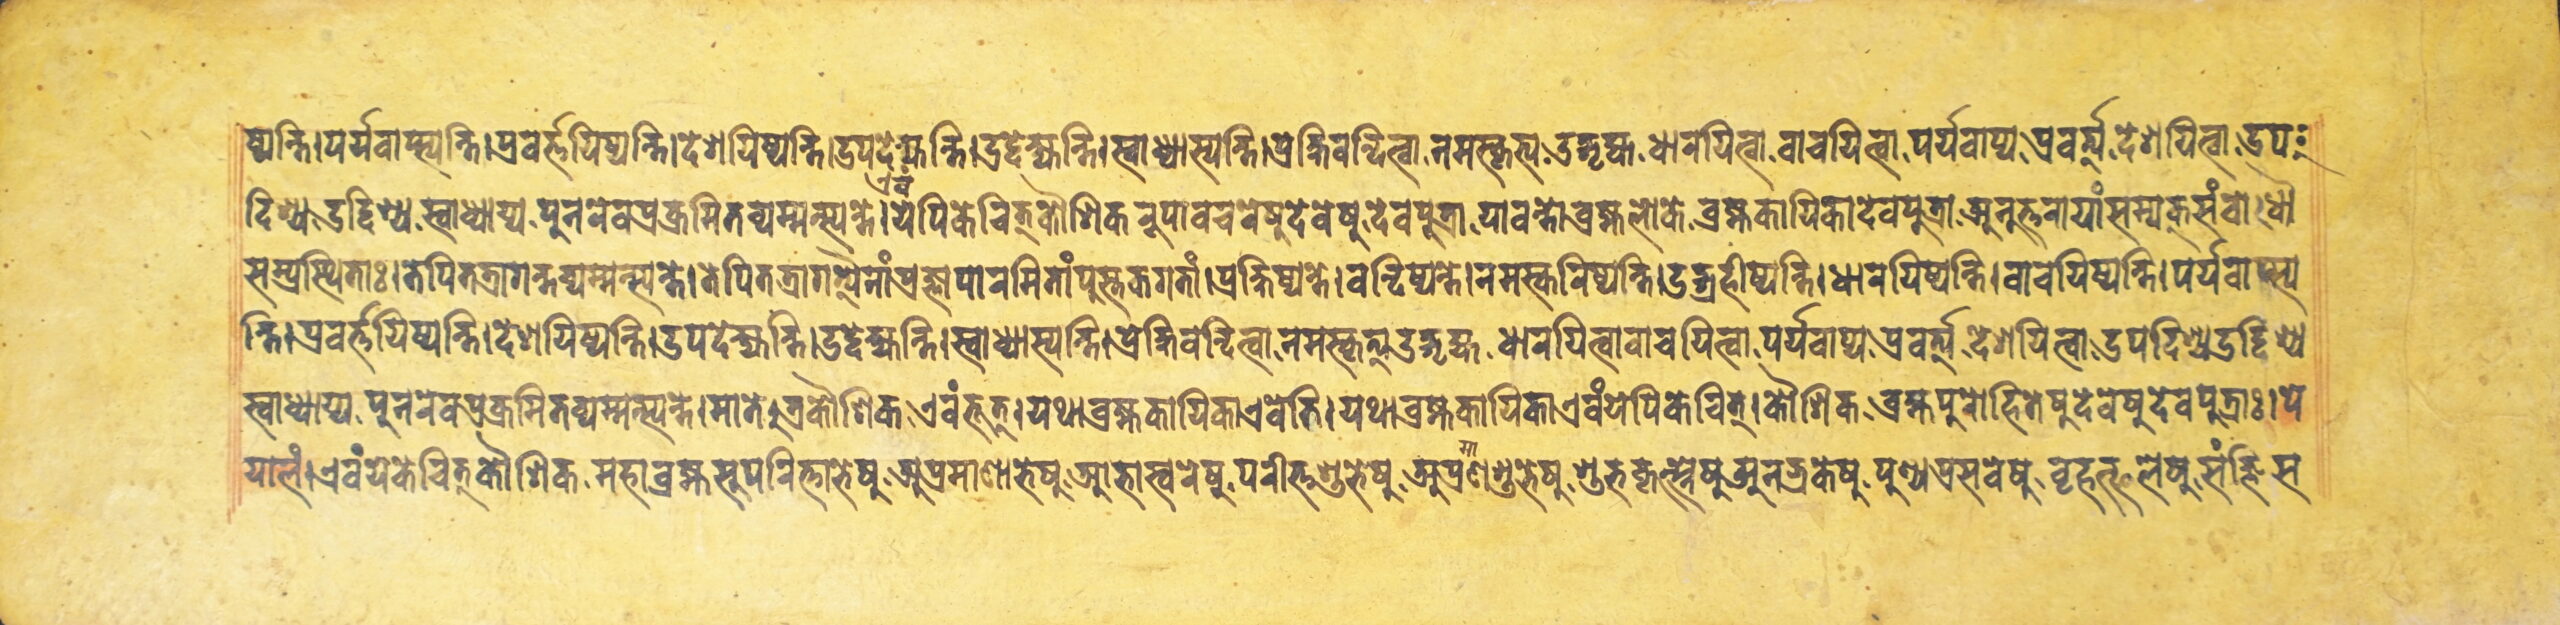 ष्यन्ति।पर्यवाप्स्यन्ति।प्रवर्त्तयिष्यन्ति।देशयिष्यन्ति।उपदेक्ष्यन्ति।उद्देक्ष्यन्ति।स्वाध्यास्यन्ति।प्रेक्षिवन्दित्वा नमस्कृत्य उद्गृह्य धारयित्वा वाचयित्वा पर्यवाप्य प्रवर्त्य देशयित्वा उप
दिश्य उद्दिश्य स्वाध्याय्य पुनरेवप्रक्रमितव्यम्मन्स्यन्ते।एवं येपिकेचित्कौशिक रूपावचरेषुदेवेषु देवपुत्रा यावन्तो ब्रह्मलोके ब्रह्मकायिकादेवपुत्रा अनुत्तरायांसम्यक्संबोधौ
सम्प्रस्थिताः।तेपितत्रागन्तव्यम्मन्स्यन्ते।तेपितत्रागत्यैनांप्रज्ञापारमितांपुस्तकगतां।प्रक्षिष्यन्ते।वन्दिष्यन्ते।नमस्करिष्यन्ति।उद्ग्रहीष्यन्ति।धारयिष्यन्ति।वाचयिष्यन्ति।पर्यवाप्स्य
न्ति।प्रवर्त्तयिष्यन्ति।देशयिष्यन्ति।उपदेक्ष्यन्ति।उद्देक्ष्यन्ति।स्वाध्यास्यन्ति।प्रेक्षिवन्दित्वा नमस्कृत्य उद्गृह्य धारयित्वावाचयित्वा पर्यवाप्य प्रवर्त्य देशयित्वा उपदिश्यउद्दिश्य
स्वाध्याय्य पुनरेवप्रक्रमितव्यम्मन्स्यन्ते।मातेऽत्रकौशिक एवंभूत्।यथाब्रह्मकायिकाएवेति।यथाब्रह्मकायिकाएवंयेपिकेचित्।कौशिक ब्रह्मपुरोहितेषुदेवेषुदेवपुत्राः।पे
यालं।एवंयेकेचित्कौशिक महाब्रह्मसुपरित्ताभेषु अप्रमाणाभेषु आभास्वरेषु परीत्तशुभेषु अप्रमाणशुभेषु शुभकृत्स्नेषुअनभ्रकेषु पुण्यप्रसवेषु बृहत्फलेषु संज्ञिस